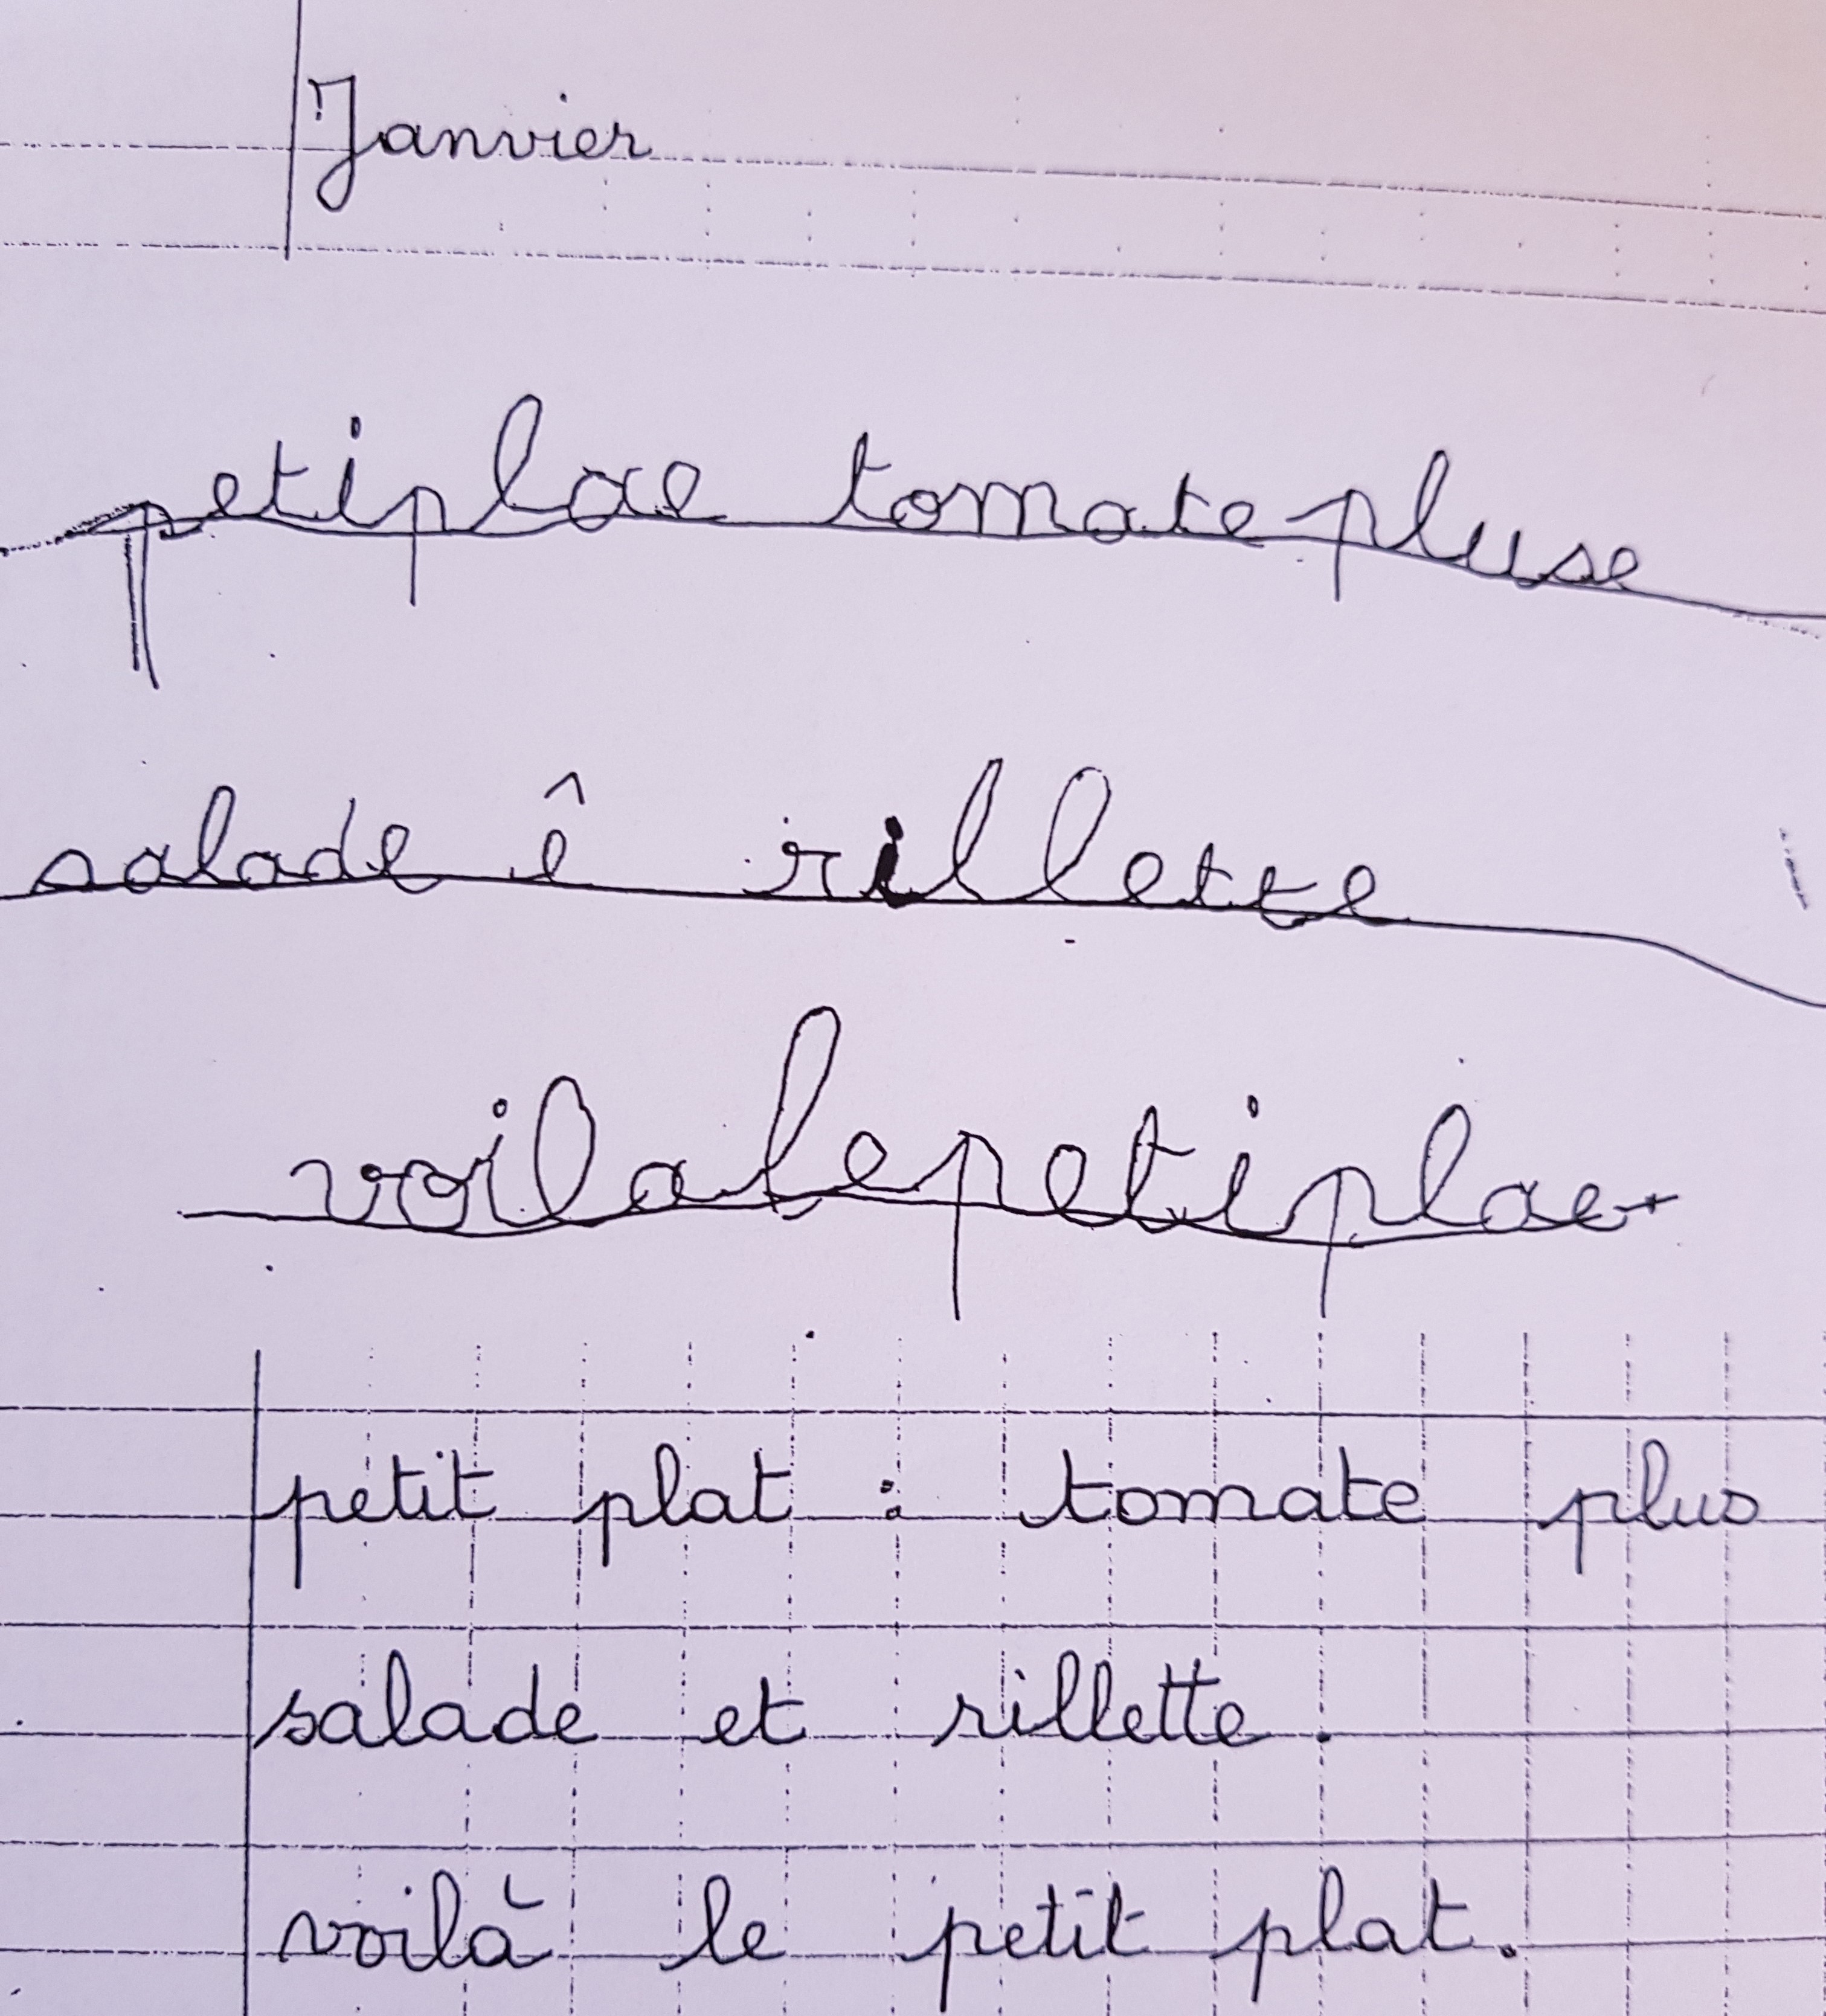 Janvier
petiplae tomatepluse
salade ê rillette
voilalepetiplae
petit plat : tomate plus
salade et rillette.
voilà le petit plat.